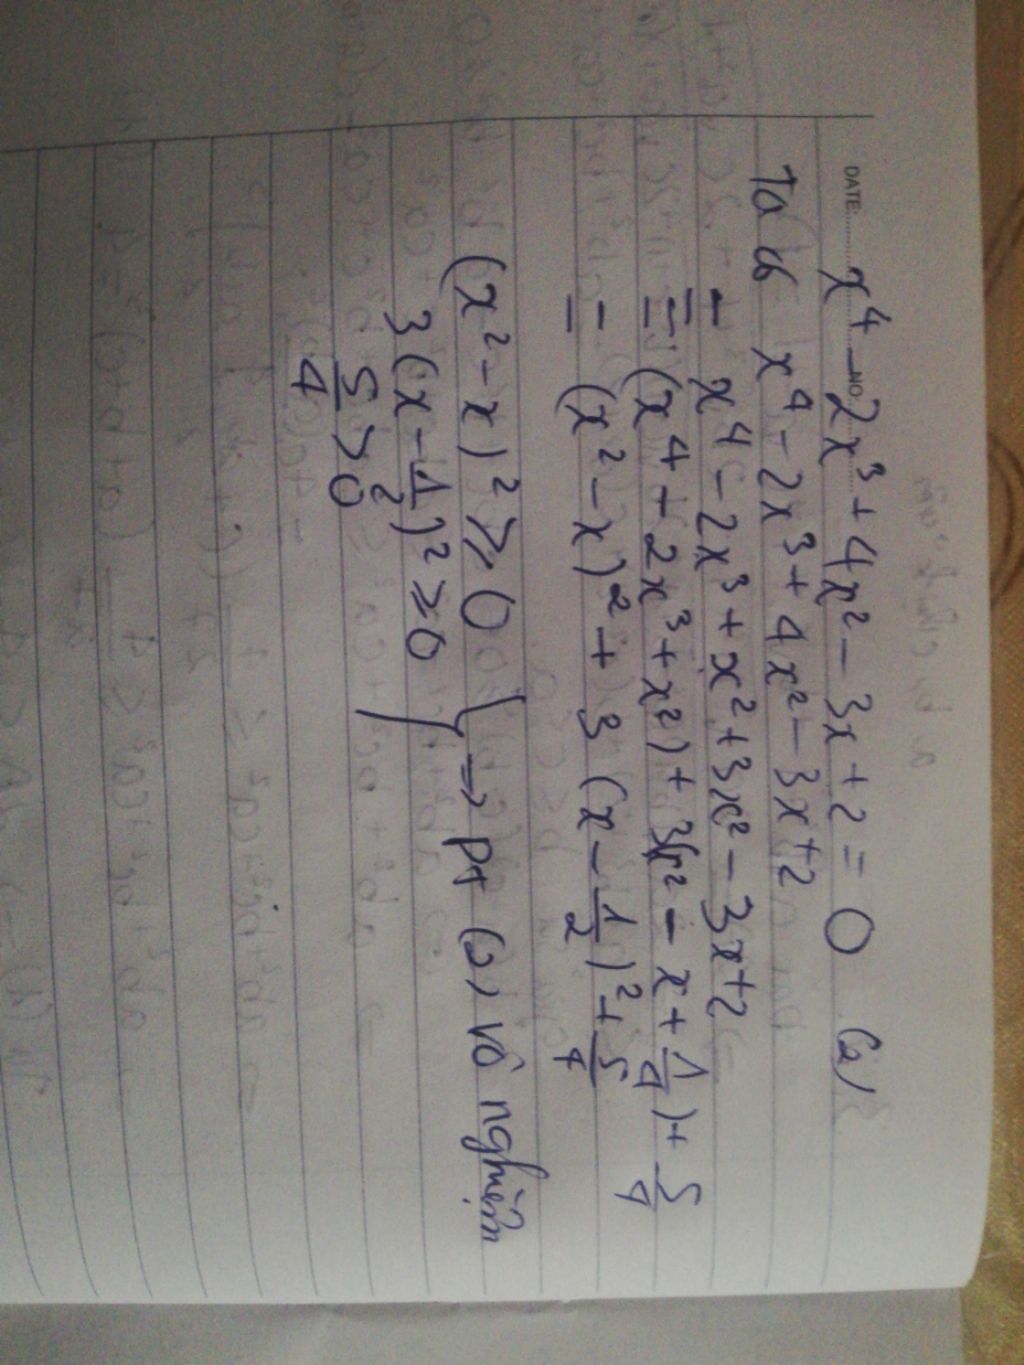 DATE: NO.
x⁴ - 2x³ + 4x² - 3x + 2 = 0 (2)
Ta có x⁴ - 2x³ + 4x² - 3x + 2
= x⁴ - 2x³ + x² + 3x² - 3x + 2
= (x⁴ - 2x³ + x²) + 3(x² - x + 1/4) + 5/4
= (x² - x)² + 3(x - 1/2)² + 5/4
(x² - x)² ≥ 0
3(x - 1/2)² ≥ 0 } → Pt (2) vô nghiệm
5/4 > 0